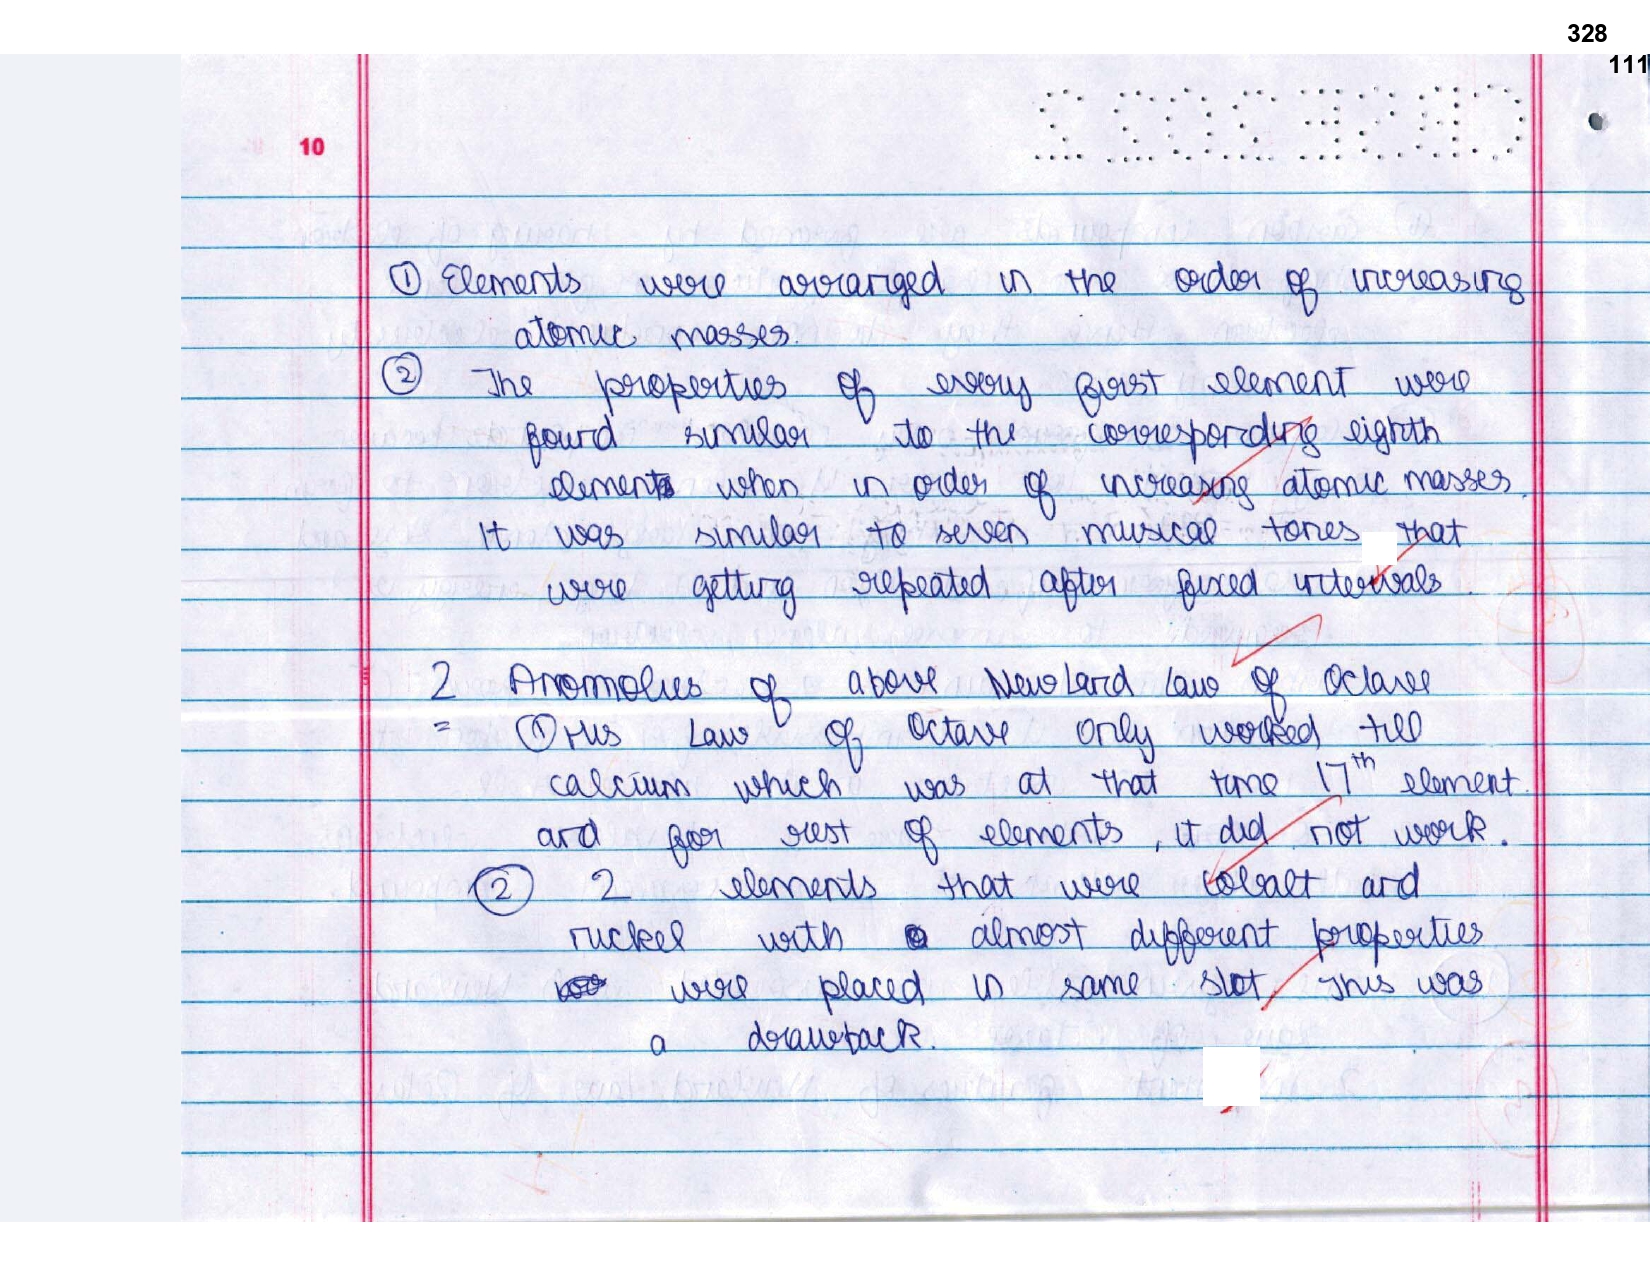 328
111
10
① Elements were arranged in the order of increasing
atomic masses.
② The properties of every first element were
found similar to the corresponding eighth
elements when in order of increasing atomic masses.
It was similar to seven musical tones that
were getting repeated after fixed intervals.
2 Anomolies of above NewLand Law of Octave
= ① His Law of Octave only worked till
calcium which was at that time 17th element
and for rest of elements, it did not work.
② 2 elements that were cobalt and
nickel with almost different properties
were placed in same slot, This was
a drawback.